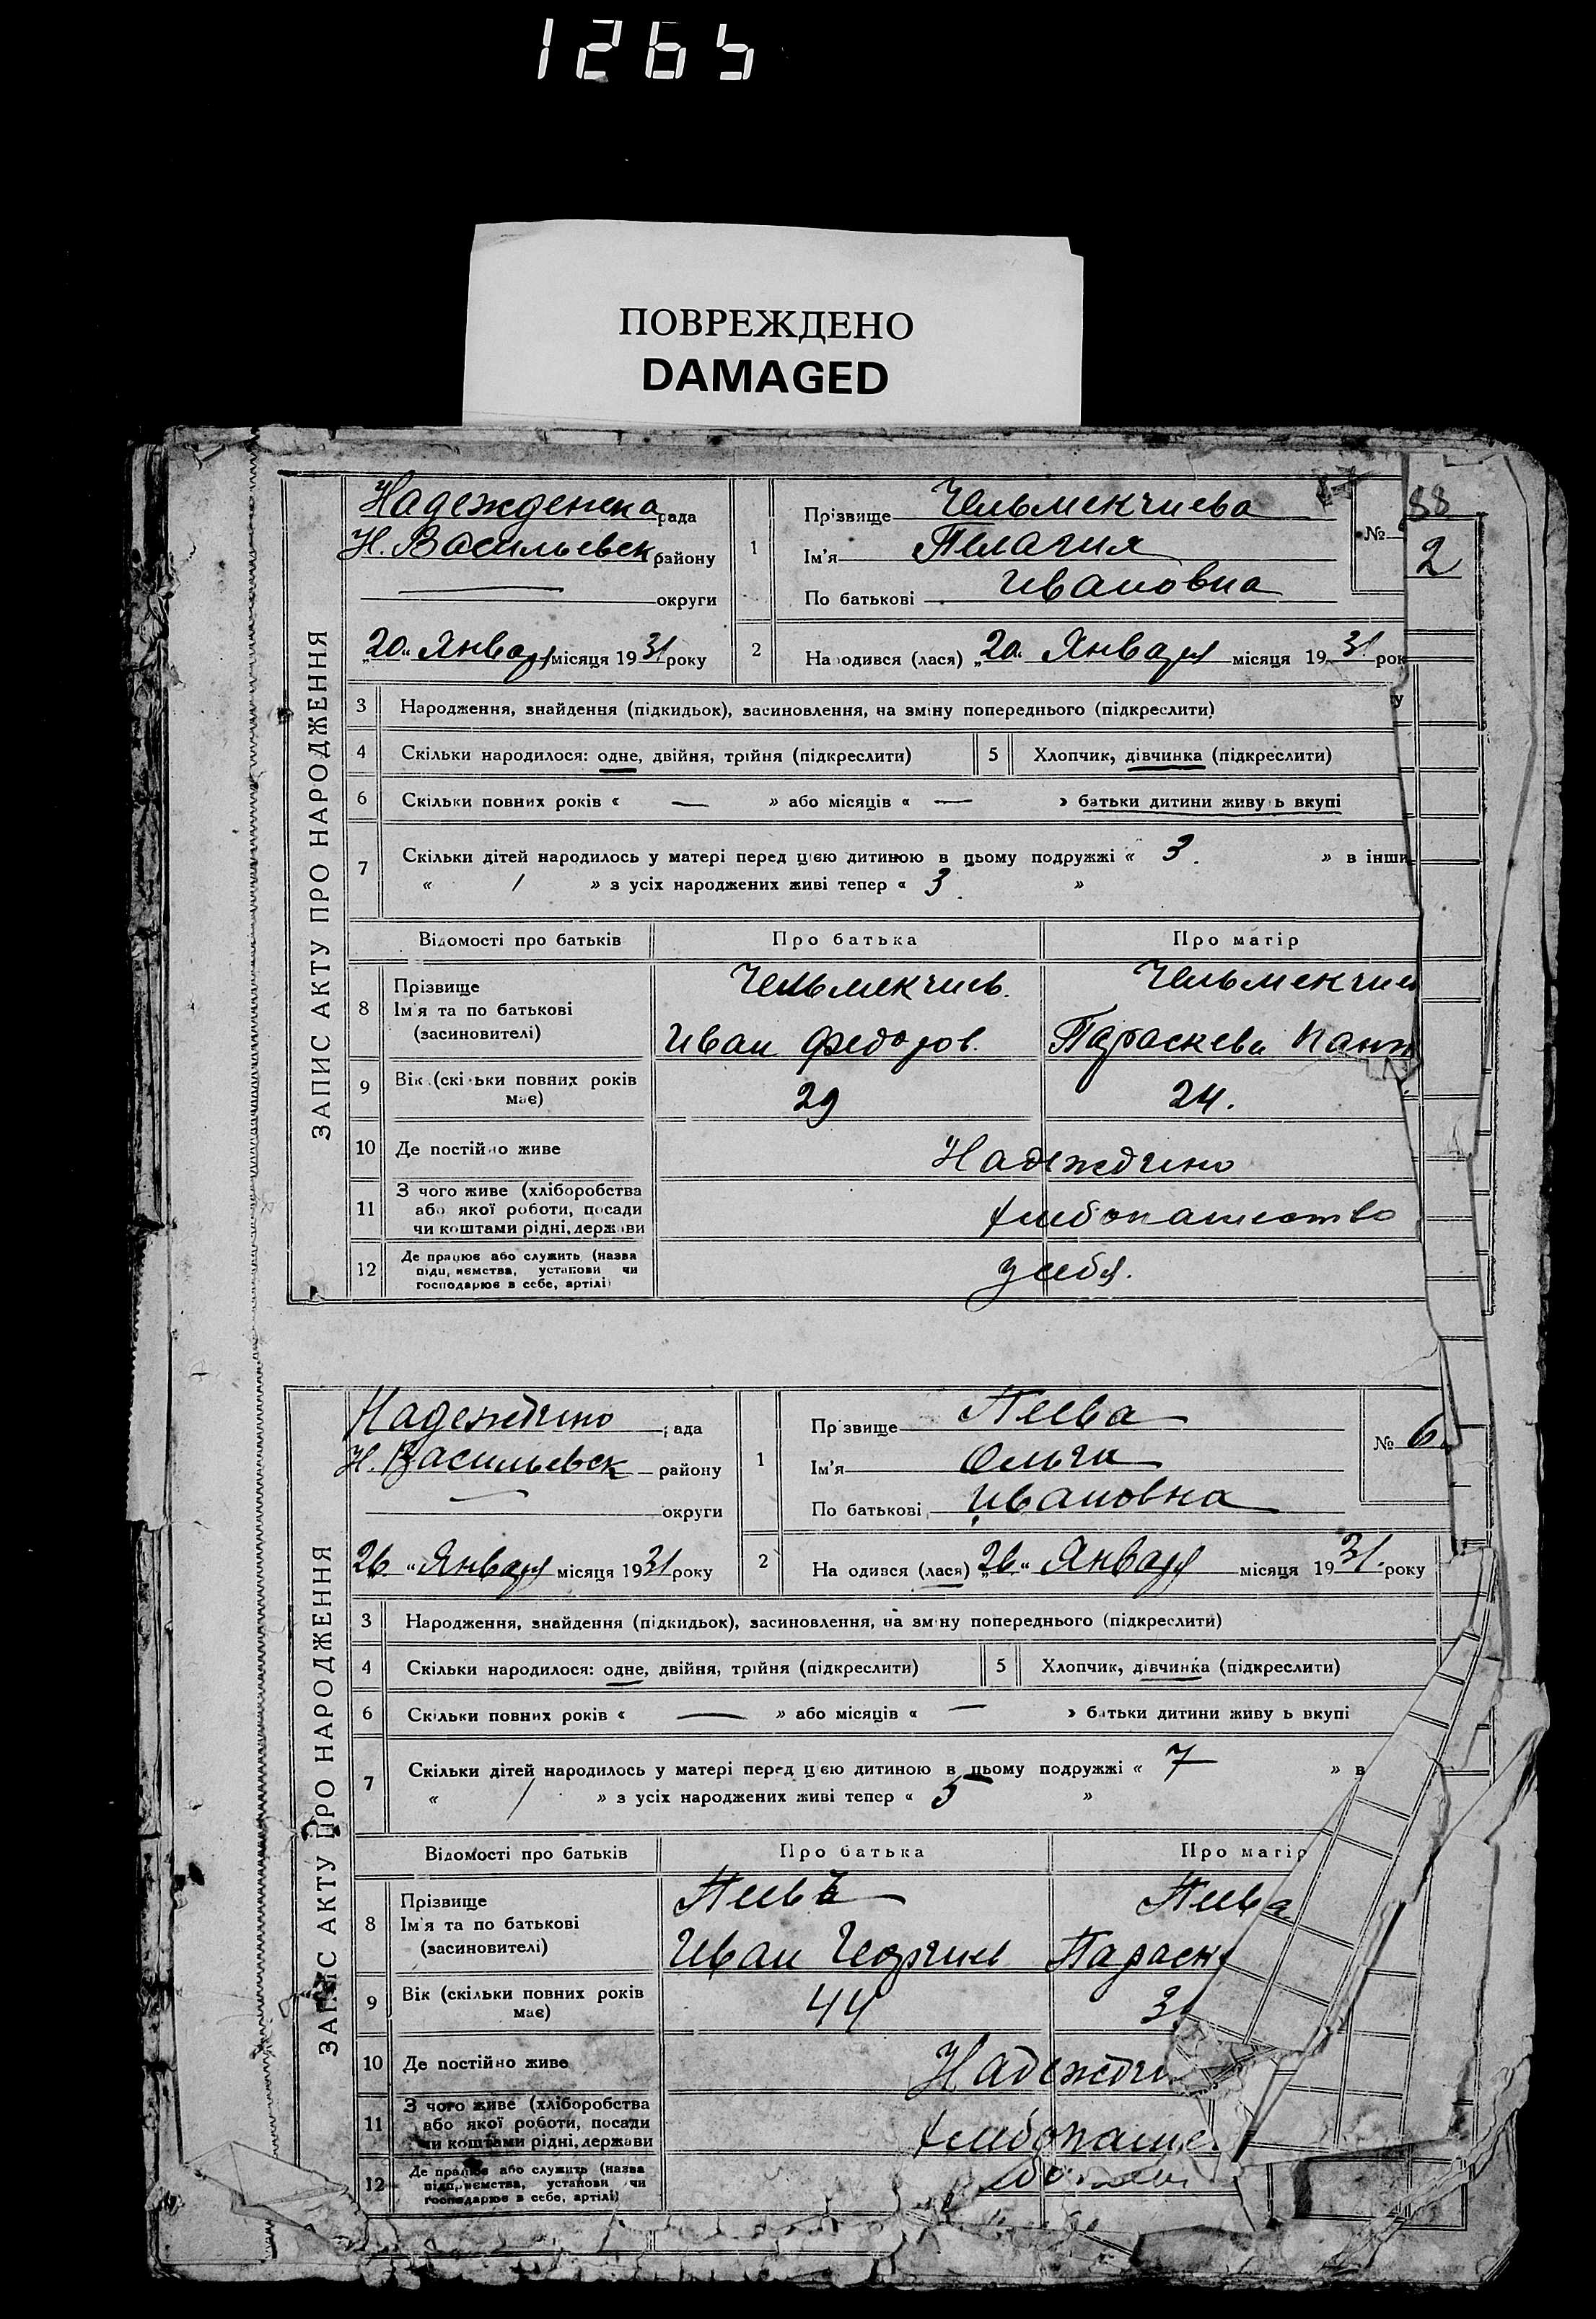 1265
ПОВРЕЖДЕНО
DAMAGED
ЗАПИС АКТУ ПРО НАРОДЖЕННЯ
Надежденска рада
Н. Васильевск району
округи
„20“ Января місяця 1931 року
1
Прізвище Чельмекчиева
Ім'я Пелагия
По батькові Ивановна
№
88
2
2
Народився (лася) „20“ Января місяця 1931 рок
3 Народження, знайдення (підкидьок), засиновлення, на зміну попереднього (підкреслити)
4 Скільки народилося: одне, двійня, трійня (підкреслити)
5 Хлопчик, дівчинка (підкреслити)
6 Скільки повних років « — » або місяців « — » батьки дитини живу ь вкупі
7 Скільки дітей народилось у матері перед цією дитиною в цьому подружжі « 3. » в інши
« / » з усіх народжених живі тепер « 3 »
Відомості про батьків
Про батька
Про матір
8 Прізвище
Ім'я та по батькові
(засиновителі)
Чельмекчиев.
Иван Федоров.
Чельмекчиев
Параскева Пант
9 Вік (скільки повних років має)
29
24.
10 Де постійно живе
Надеждино
11 З чого живе (хліборобства
або якої роботи, посади
чи коштами рідні, держави
хлебопашество
12 Де працює або служить (назва
підприємства, установи чи
господарює в себе, артілі)
у себя.
ЗАПИС АКТУ ПРО НАРОДЖЕННЯ
Надеждино рада
Н. Васильевск району
округи
26 “ Января місяця 1931 року
1
Прізвище Пеева
Ім'я Ольга
По батькові Ивановна
№ 6
2
На одився (лася) „26“ Января місяця 1931. року
3 Народження, знайдення (підкидьок), засиновлення, на зміну попереднього (підкреслити)
4 Скільки народилося: одне, двійня, трійня (підкреслити)
5 Хлопчик, дівчинка (підкреслити)
6 Скільки повних років « — » або місяців « — » батьки дитини живу ь вкупі
7 Скільки дітей народилось у матері перед цією дитиною в цьому подружжі « 7 » в
« / » з усіх народжених живі тепер « 5 »
Відомості про батьків
Про батька
Про матір
8 Прізвище
Ім'я та по батькові
(засиновителі)
Пеевъ
Иван Георгиев
Пеева
Параск
9 Вік (скільки повних років має)
44
3
10 Де постійно живе
Надежди
11 З чого живе (хліборобства
або якої роботи, посади
чи коштами рідні, держави
хлебопаше
12 Де працює або служить (назва
підприємства, установи чи
господарює в себе, артілі)